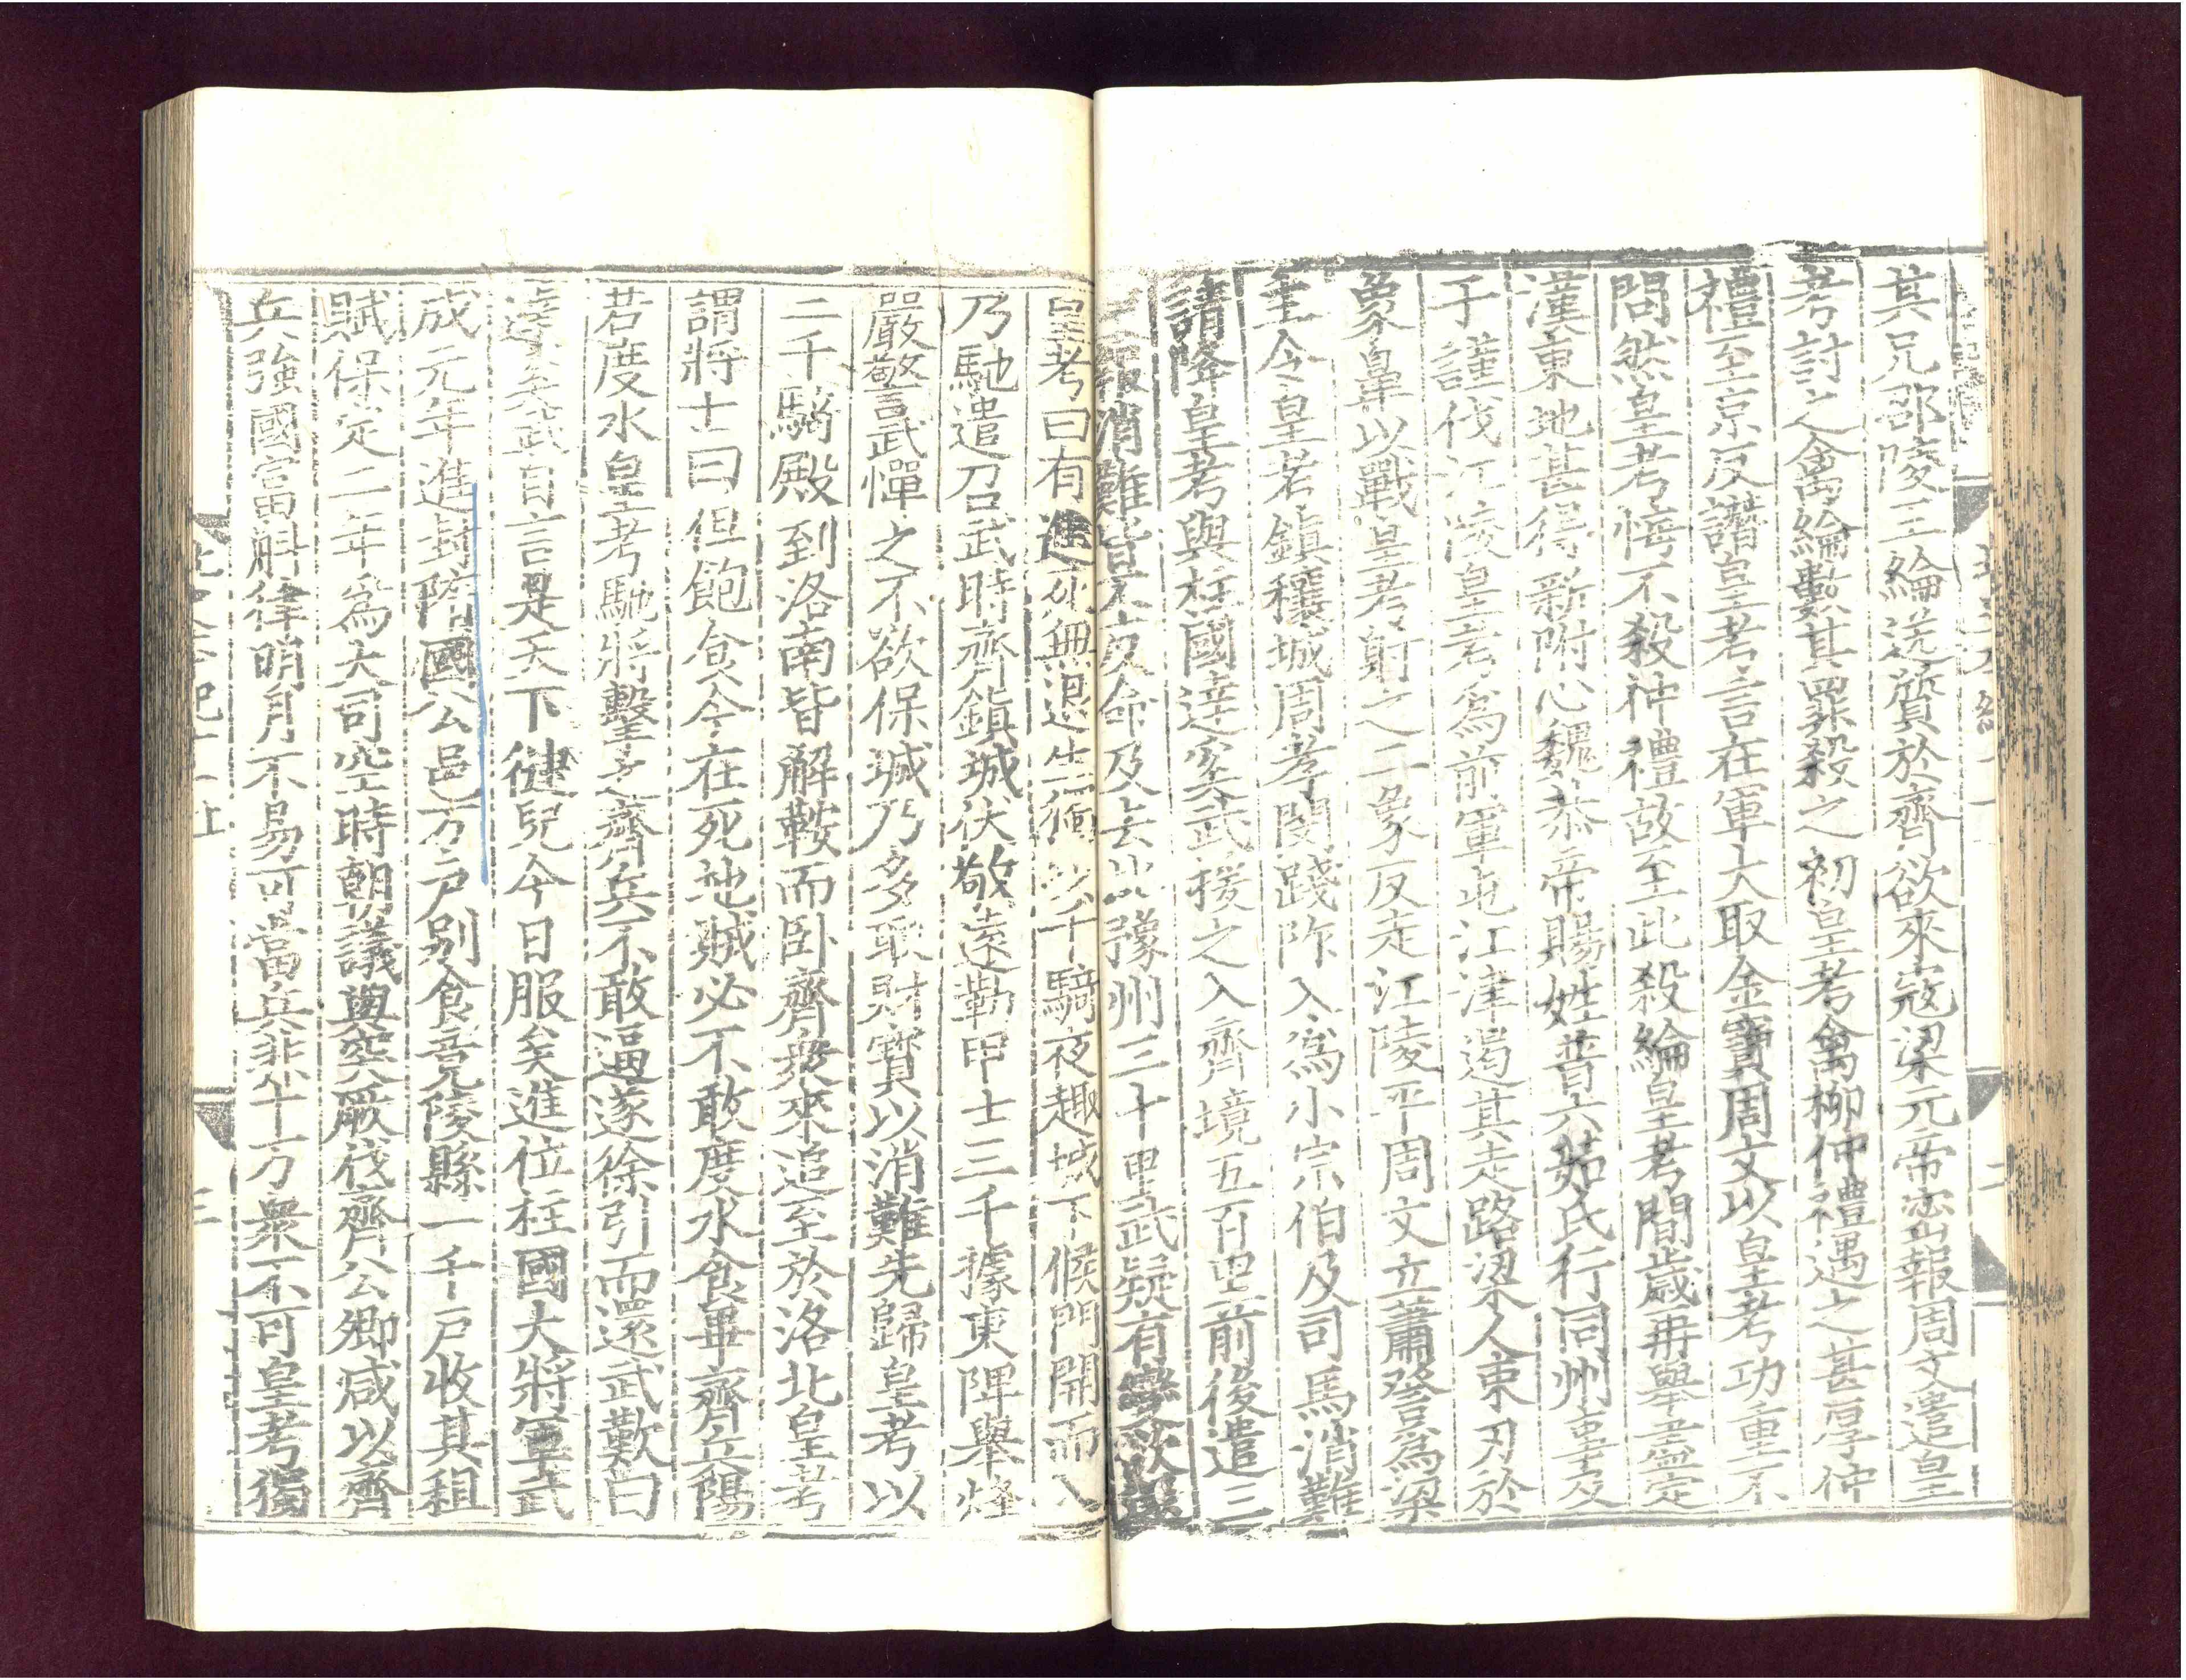 其兄邵陵王綸送質於齊欲來寇梁元帝密報周文遣皇
考討之禽綸數其罪殺之初皇考禽柳仲禮遇之甚厚仲
禮至京反譖皇考言在軍大取金寶周文以皇考功重不
問然皇考悔不殺仲禮故至此殺綸皇考間歲再舉盡定
漢東地甚得新附心魏恭帝賜姓普六茹氏行同州事及
于謹伐江陵皇考爲前軍屯江津遏其走路梁人束刃於
象鼻以戰皇考射之二象反走江陵平周文立蕭詧爲梁
主令皇考鎮穰城周孝閔踐阼入爲小宗伯及司馬消難
請降皇考與柱國達奚武援之入齊境五百里前後遣三
使報消難皆不反命及去北豫州三十里武疑有變欲還
皇考曰有進死無退生獨以千騎夜趣城下候門開而入
乃馳遣召武時齊鎮城伏敬遠勒甲士三千據東陴舉烽
嚴警武憚之不欲保城乃多取財寶以消難先歸皇考以
三千騎殿到洛南皆解鞍而卧齊衆來追至於洛北皇考
謂將士曰但飽食今在死地賊必不敢度水食畢齊兵陽
若度水皇考馳將擊之齊兵不敢逼遂徐引而還武歎曰
達奚武自言是天下健兒今日服矣進位柱國大將軍武
成元年進封隋國公邑万户別食竟陵縣一千戸收其租
賦保定二年爲大司空時朝議與突厥伐齊公卿咸以齊
兵強國富斛律明月不易可當兵非十万衆不可皇考獨
北史本紀十一
三